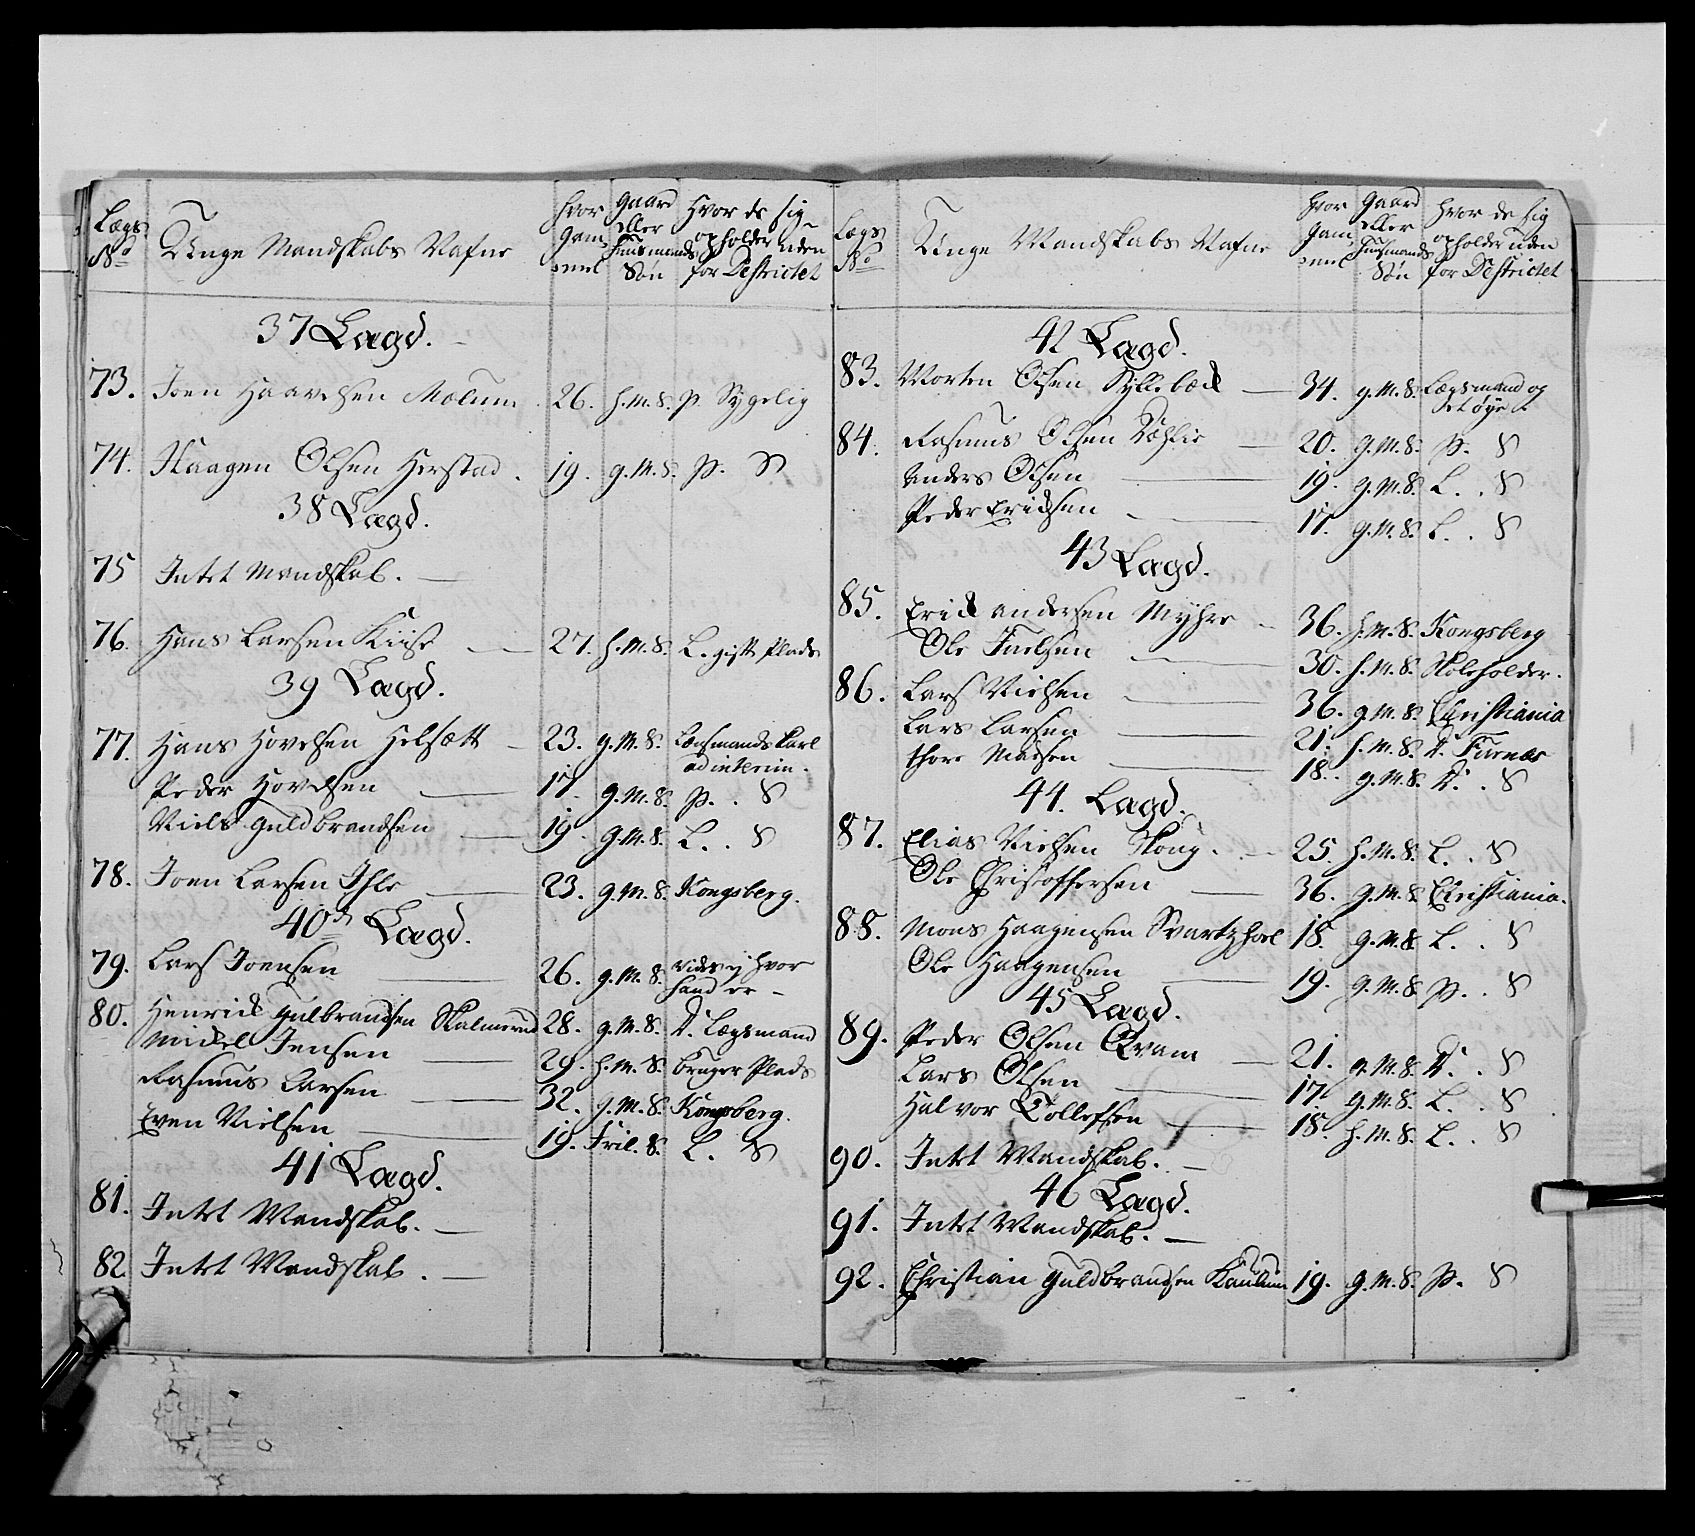 Lægs No
Unge Mandskabs Nafne
hvor gam̅el
Gaard eller Huusmands Søn
Hvor de sig opholder uden for Destrictet
37 Lægd.
73. Joen Haavelsen Mælum 26. h.M.S. P. Sygelig
74. Haagen Olsen Herstad. 19. g.M.S. P. S
38 Lægd.
75 Intet Mandskab.
76. Hans Larsen Kiise 27. h.M.S. L. gift Plads
39 Lægd.
77. Hans Hovelsen Helsætt 23. g.M.S. Lensmandskarl ad interim.
Peder Hovelsen 17 g.M.S. P. S
Niels Guldbrandsen 19. g.M.S. L. S
78. Joen Larsen Ihle 23. g.M.S. Kongsberg.
40de Lægd.
79. Lars Joensen 26. g.M.S. vides ej hvor hand er
80. Henrick Gulbrandsen Skalmerud 28. g.M.S. D. Lægsmand
Mickel Jensen 29. h.M.S. bruger Plads
Rasmus Larsen 32. g.M.S. Kongsberg.
Even Nielsen 19. Fril. S. L. S
41 Lægd.
81. Intet Mandskab.
82 Intet Mandskab.
Lægs No
Unge Mandskabs Nafne
hvor gam̅el
Gaard eller Huusmands Søn
Hvor de sig opholder uden for Destrictet
42 Lægd.
83. Morten Olsen Syllebæck 34. g.M.S. Lægsmand og
84. Rasmus Olsen Døhlie 20. g.M.S. P. S
Anders Olsen 19. g.M.S. L. S
Peder Erichsen 17. g.M.S. L. S
43 Lægd.
85. Erick Andersen Myhre 36. h.M.S. Kongsberg
Ole 30. h.M.S. Skoleholder.
86. Lars Nielsen 36. g.M.S. Christiania
Lars Larsen 21. h.M.S. D. Furnæs
Thore Madsen 18. g.M.S. D. S
44. Lægd.
87. Elias Nielsen Skoug. 25. h.M.S. L. S
Ole Christoffersen 36. g.M.S. Christiania.
88. Mons Haagensen Svartzhoel 18. g.M.S. L. S
Ole Haagensen 19. g.M.S. P. S
45 Lægd.
89. Peder Olsen Qvam 21. g.M.S. D. S
Lars Olsen 17 g.M.S. L. S
Halvor Tollefsen 18. h.M.S. L. S
90. Intet Mandskab.
46 Lægd.
91. Intet Mandskab.
92. Christian Guldbrandsen Kaulum 19. g.M.S. P. S